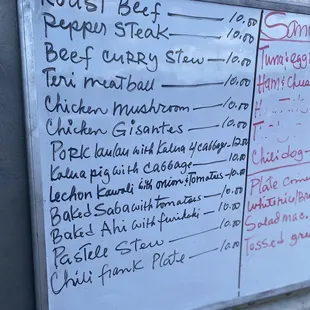 Roast Beef — 10.50
Pepper Steak — 10.00
Beef curry Stew — 10.00
Teri meatball — 10.00
Chicken Mushroom — 10.00
Chicken Gisantes — 10.00
Pork laulau with Kalua y cabbage — 12.50
Kalua pig with cabbage — 10.00
Lechon Kawali with onion & Tomatoes — 10.00
Baked Saba with tomatoes — 10.00
Baked Ahi with furikake — 10.50
Pastele Stew — 10.00
Chili frank Plate — 10.00
Tuna & egg
Ham & Chee
Chili dog
Plate Come
white rice/Br
Salad mac.
Tossed gre